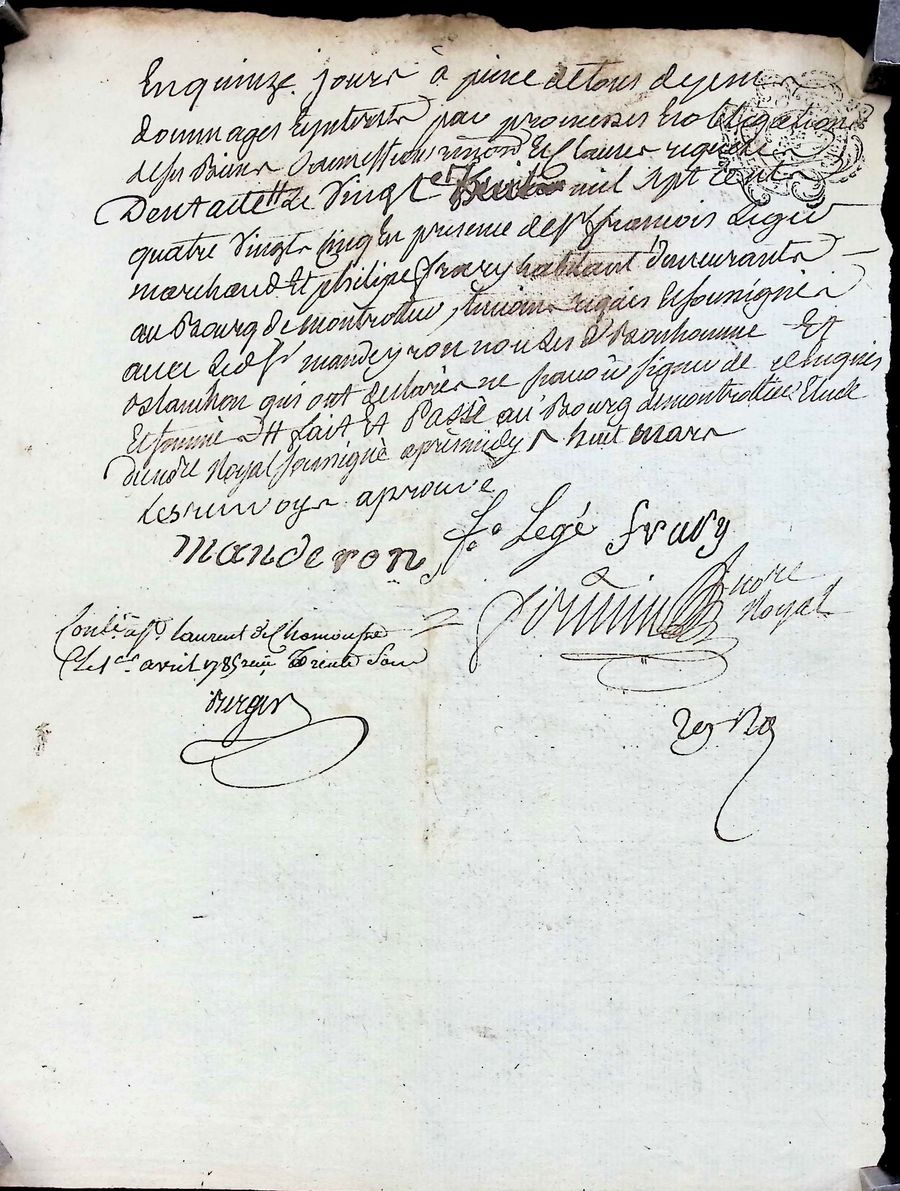 En quinze jours à peine de tous depens
dommages Et interets par promesses Et obligation
de ses Biens Soumission renon.on Et Clauses requises
Dont acte tt de Vingt et mil sept cent
quatre Vingts cinq En presence de sr francois Leger
marchand Et philipe fravy habitant demeurants
au Bourg de montrottier, temoins requis Et soussignes
avec ledt sr manderon non les d Bonhomme Et
Blanchon qui ont declarés ne savoir signer de ce enquis
Et sommé /. fait Et Passé au Bourg de montrottier Etude
du notre Royal soussigné apres midy huit mars
Les renvoys aprouvé
manderon, fs Legé fravy
notre
Royal
Contlé à St Laurent de Chamousset
Le 1er avril 1785 reçu Trente Sous
Berger